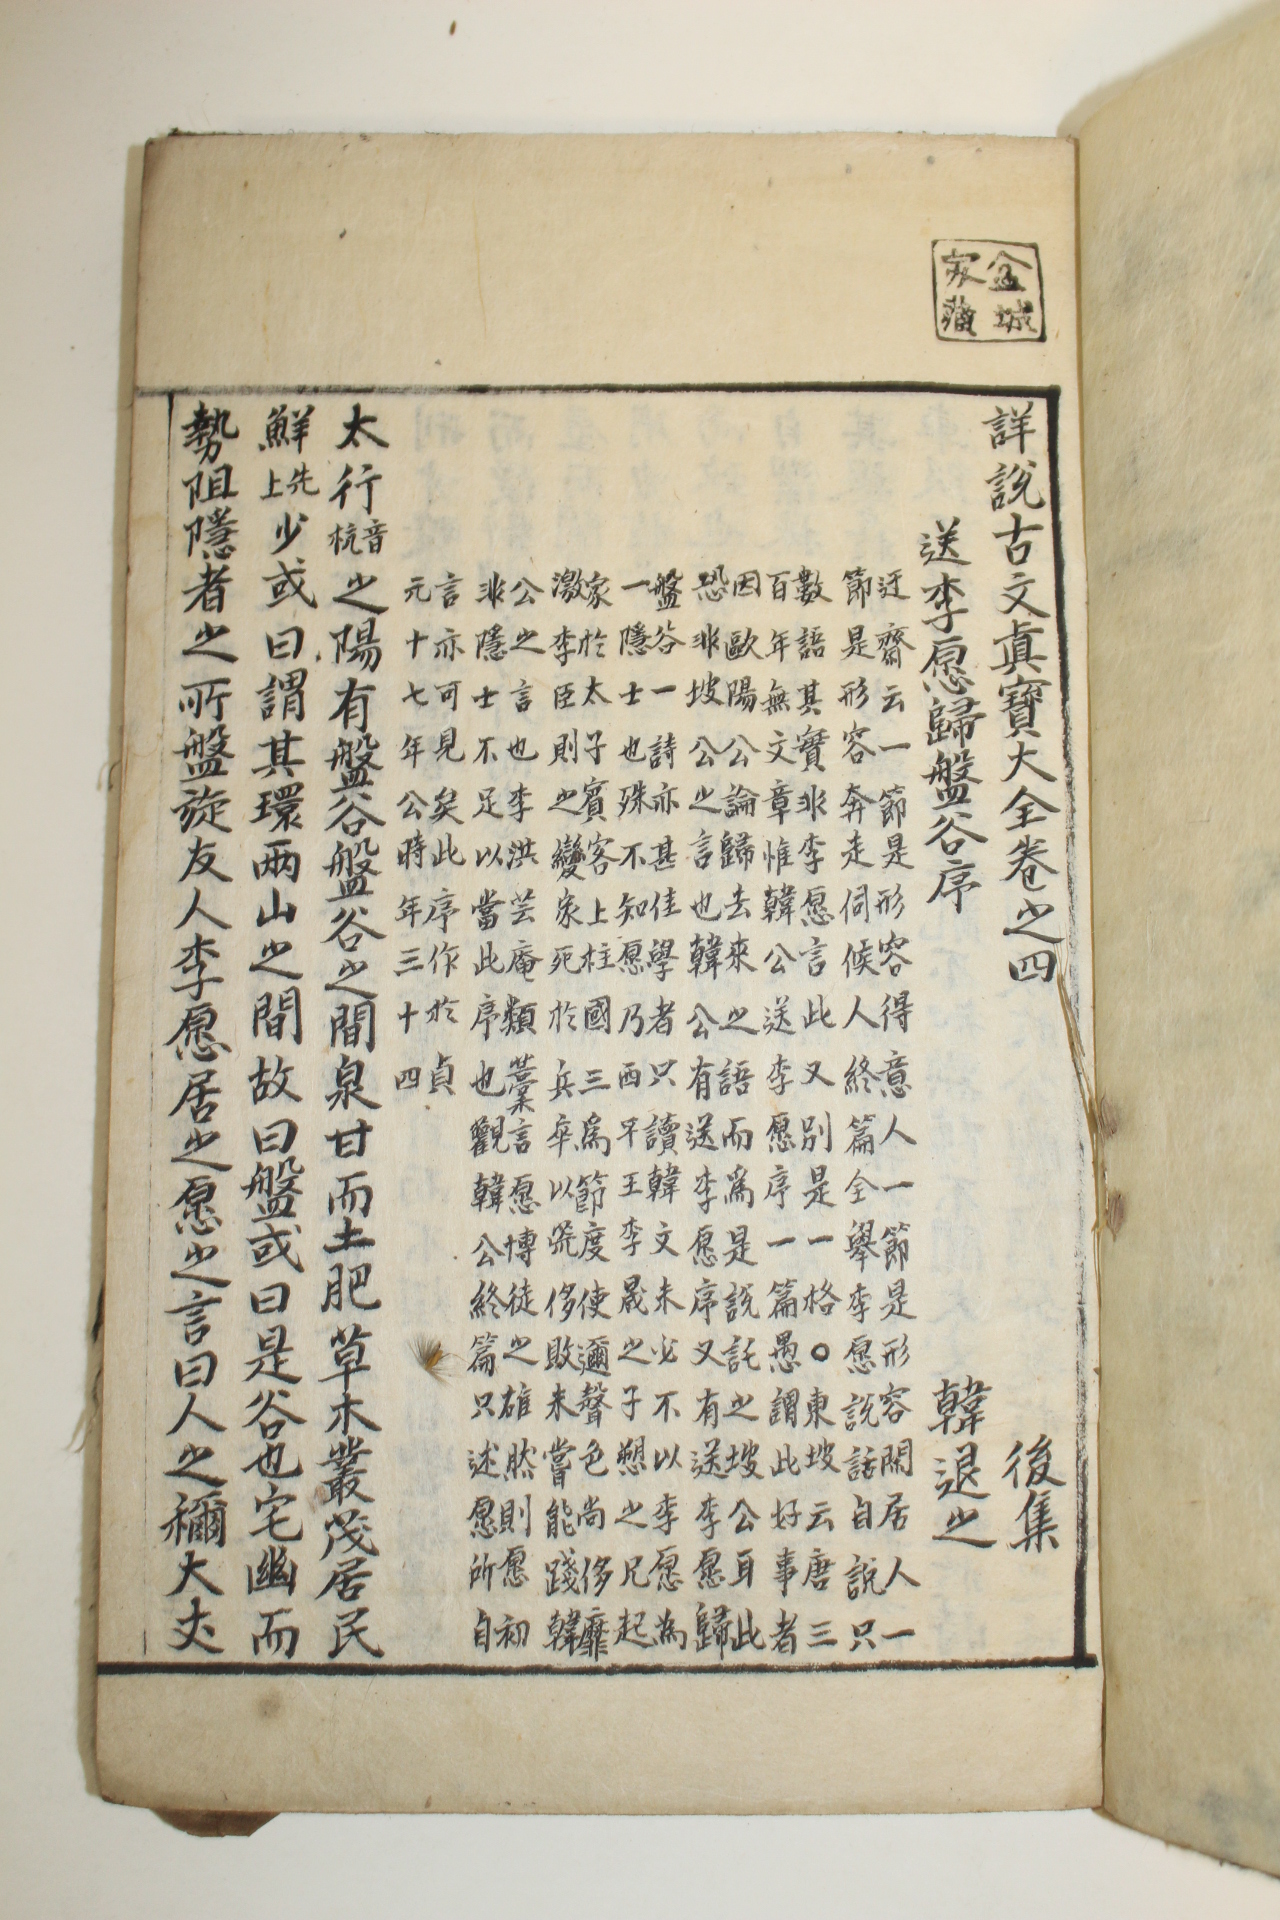 金城
家藏
詳說古文眞寶大全卷之四 後集
送李愿歸盤谷序 韓退之
迂齋云一節是形容得意人一節是形容閑居人一
節是形容奔走伺候人終篇全舉李愿說話自說只
數語其實非李愿言此又別是一格○東坡云唐三
百年無文章惟韓公送李愿序一篇愚謂此好事者
因歐陽公論歸去來之語而爲是說託之坡公耳此
恐非坡公之言也韓公有送李愿序又有送李愿歸
盤谷一詩亦甚佳學者只讀韓文未必不以李愿為
一隱士也殊不知愿乃西平王李晟之子愬之兄起
家於太子賓客上柱國三爲節度使邇聲色尚侈靡
激李臣則之變家死於兵卒以荒侈敗未嘗能踐韓
公之言也李洪芸庵類藁言愿博徒之雄然則愿初
非隱士不足以當此序也觀韓公終篇只述愿所自
言亦可見矣此序作於貞
元十七年公時年三十四
太行音杭之陽有盤谷盤谷之間泉甘而土肥草木叢茂居民
鮮先上少或曰謂其環兩山之間故曰盤或曰是谷也宅幽而
勢阻隱者之所盤旋友人李愿居之愿之言曰人之禰大丈